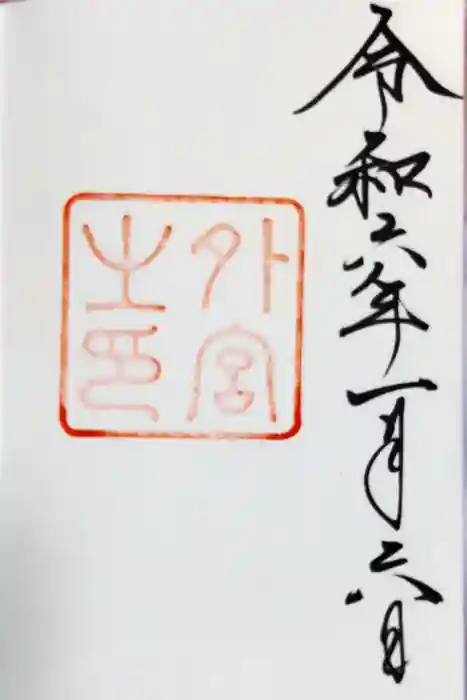 令和六年一月六日
外宮
之印